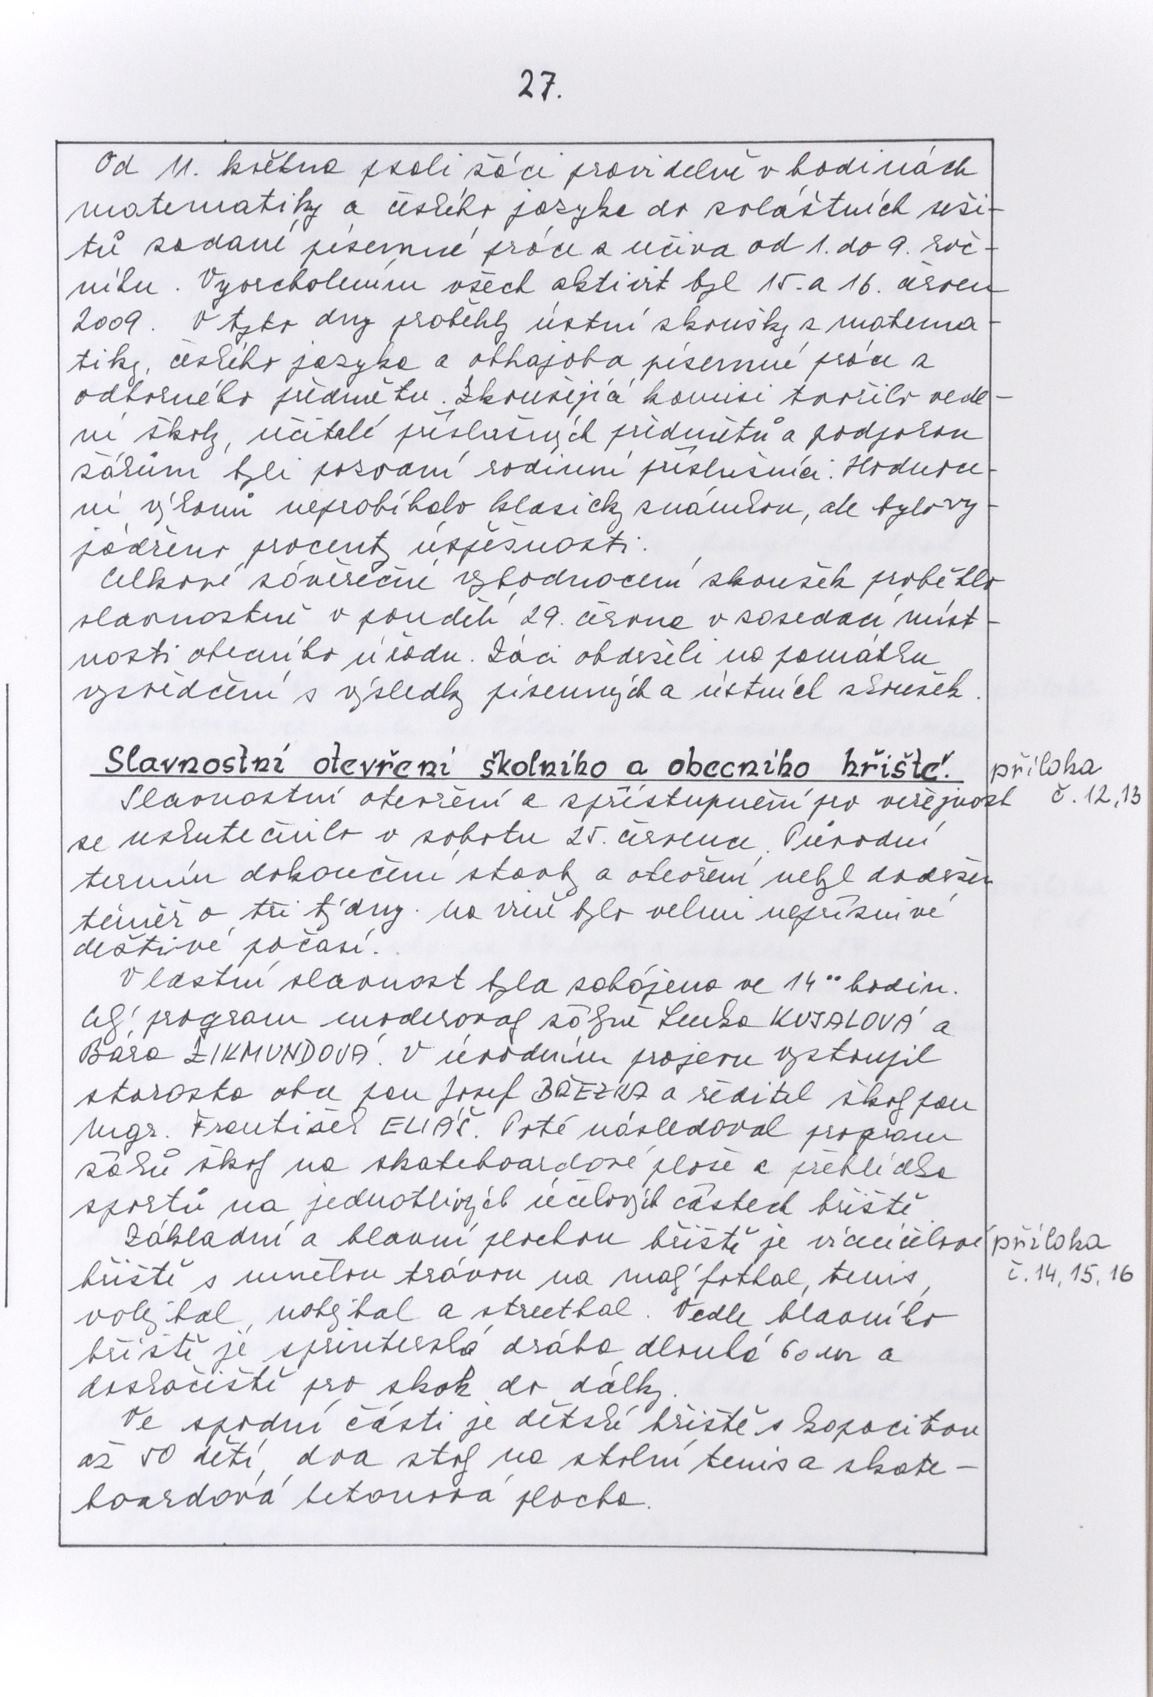 27.
Od 11. května psali žáci pravidelně v hodinách
matematiky a českého jazyka do zvláštních seši-
tů zadané písemné práce z učiva od 1. do 9. roč-
níku. Vyvrcholením všech aktivit byl 15. a 16. červen
2009. V tyto dny proběhly ústní zkoušky z matema-
tiky, českého jazyka a obhajoba písemné práce z
odborného předmětu. Zkoušející komisi tvořilo vede-
ní školy, učitelé příslušných předmětů a podporou
žákům byli pozvaní rodinní příslušníci. Hodnoce-
ní výkonů neprobíhalo klasicky známkou, ale bylo vy-
jádřeno procenty úspěšnosti.
Celkové závěrečné vyhodnocení zkoušek proběhlo
slavnostně v pondělí 29. června v zasedací míst-
nosti obecního úřadu. Žáci obdrželi na památku
vysvědčení s výsledky písemných a ústních zkoušek.
Slavnostní otevření školního a obecního hřiště.
příloha
č. 12, 13
Slavnostní otevření a zpřístupnění pro veřejnost
se uskutečnilo v sobotu 25. července. Původní
termín dokončení stavby a otevření nebyl dodržen
téměř o tři týdny. Na vině bylo velmi nepříznivé
deštivé počasí.
Vlastní slavnost byla zahájena ve 14°° hodin.
Celý program moderovaly žákyně Lenka KUJALOVÁ a
Bára ZIKMUNDOVÁ. V úvodním projevu vystoupil
starosta obce pan Josef BŘEZKA a ředitel školy pan
Mgr. František ELIÁŠ. Poté následoval program
žáků školy na skateboardové ploše a přehlídka
sportů na jednotlivých účelových částech hřiště
Základní a hlavní plochou hřiště je víceúčelové
příloha
č. 14, 15, 16
hřiště s umělou trávou na malý fotbal, tenis,
volejbal, nohejbal a streetbal. Vedle hlavního
hřiště je sprinterská dráha dlouhá 60 m a
doskočiště pro skok do dálky.
Ve spodní části je dětské hřiště s kapacitou
až 50 dětí, dva stoly na stolní tenis a skate-
boardová betonová plocha.